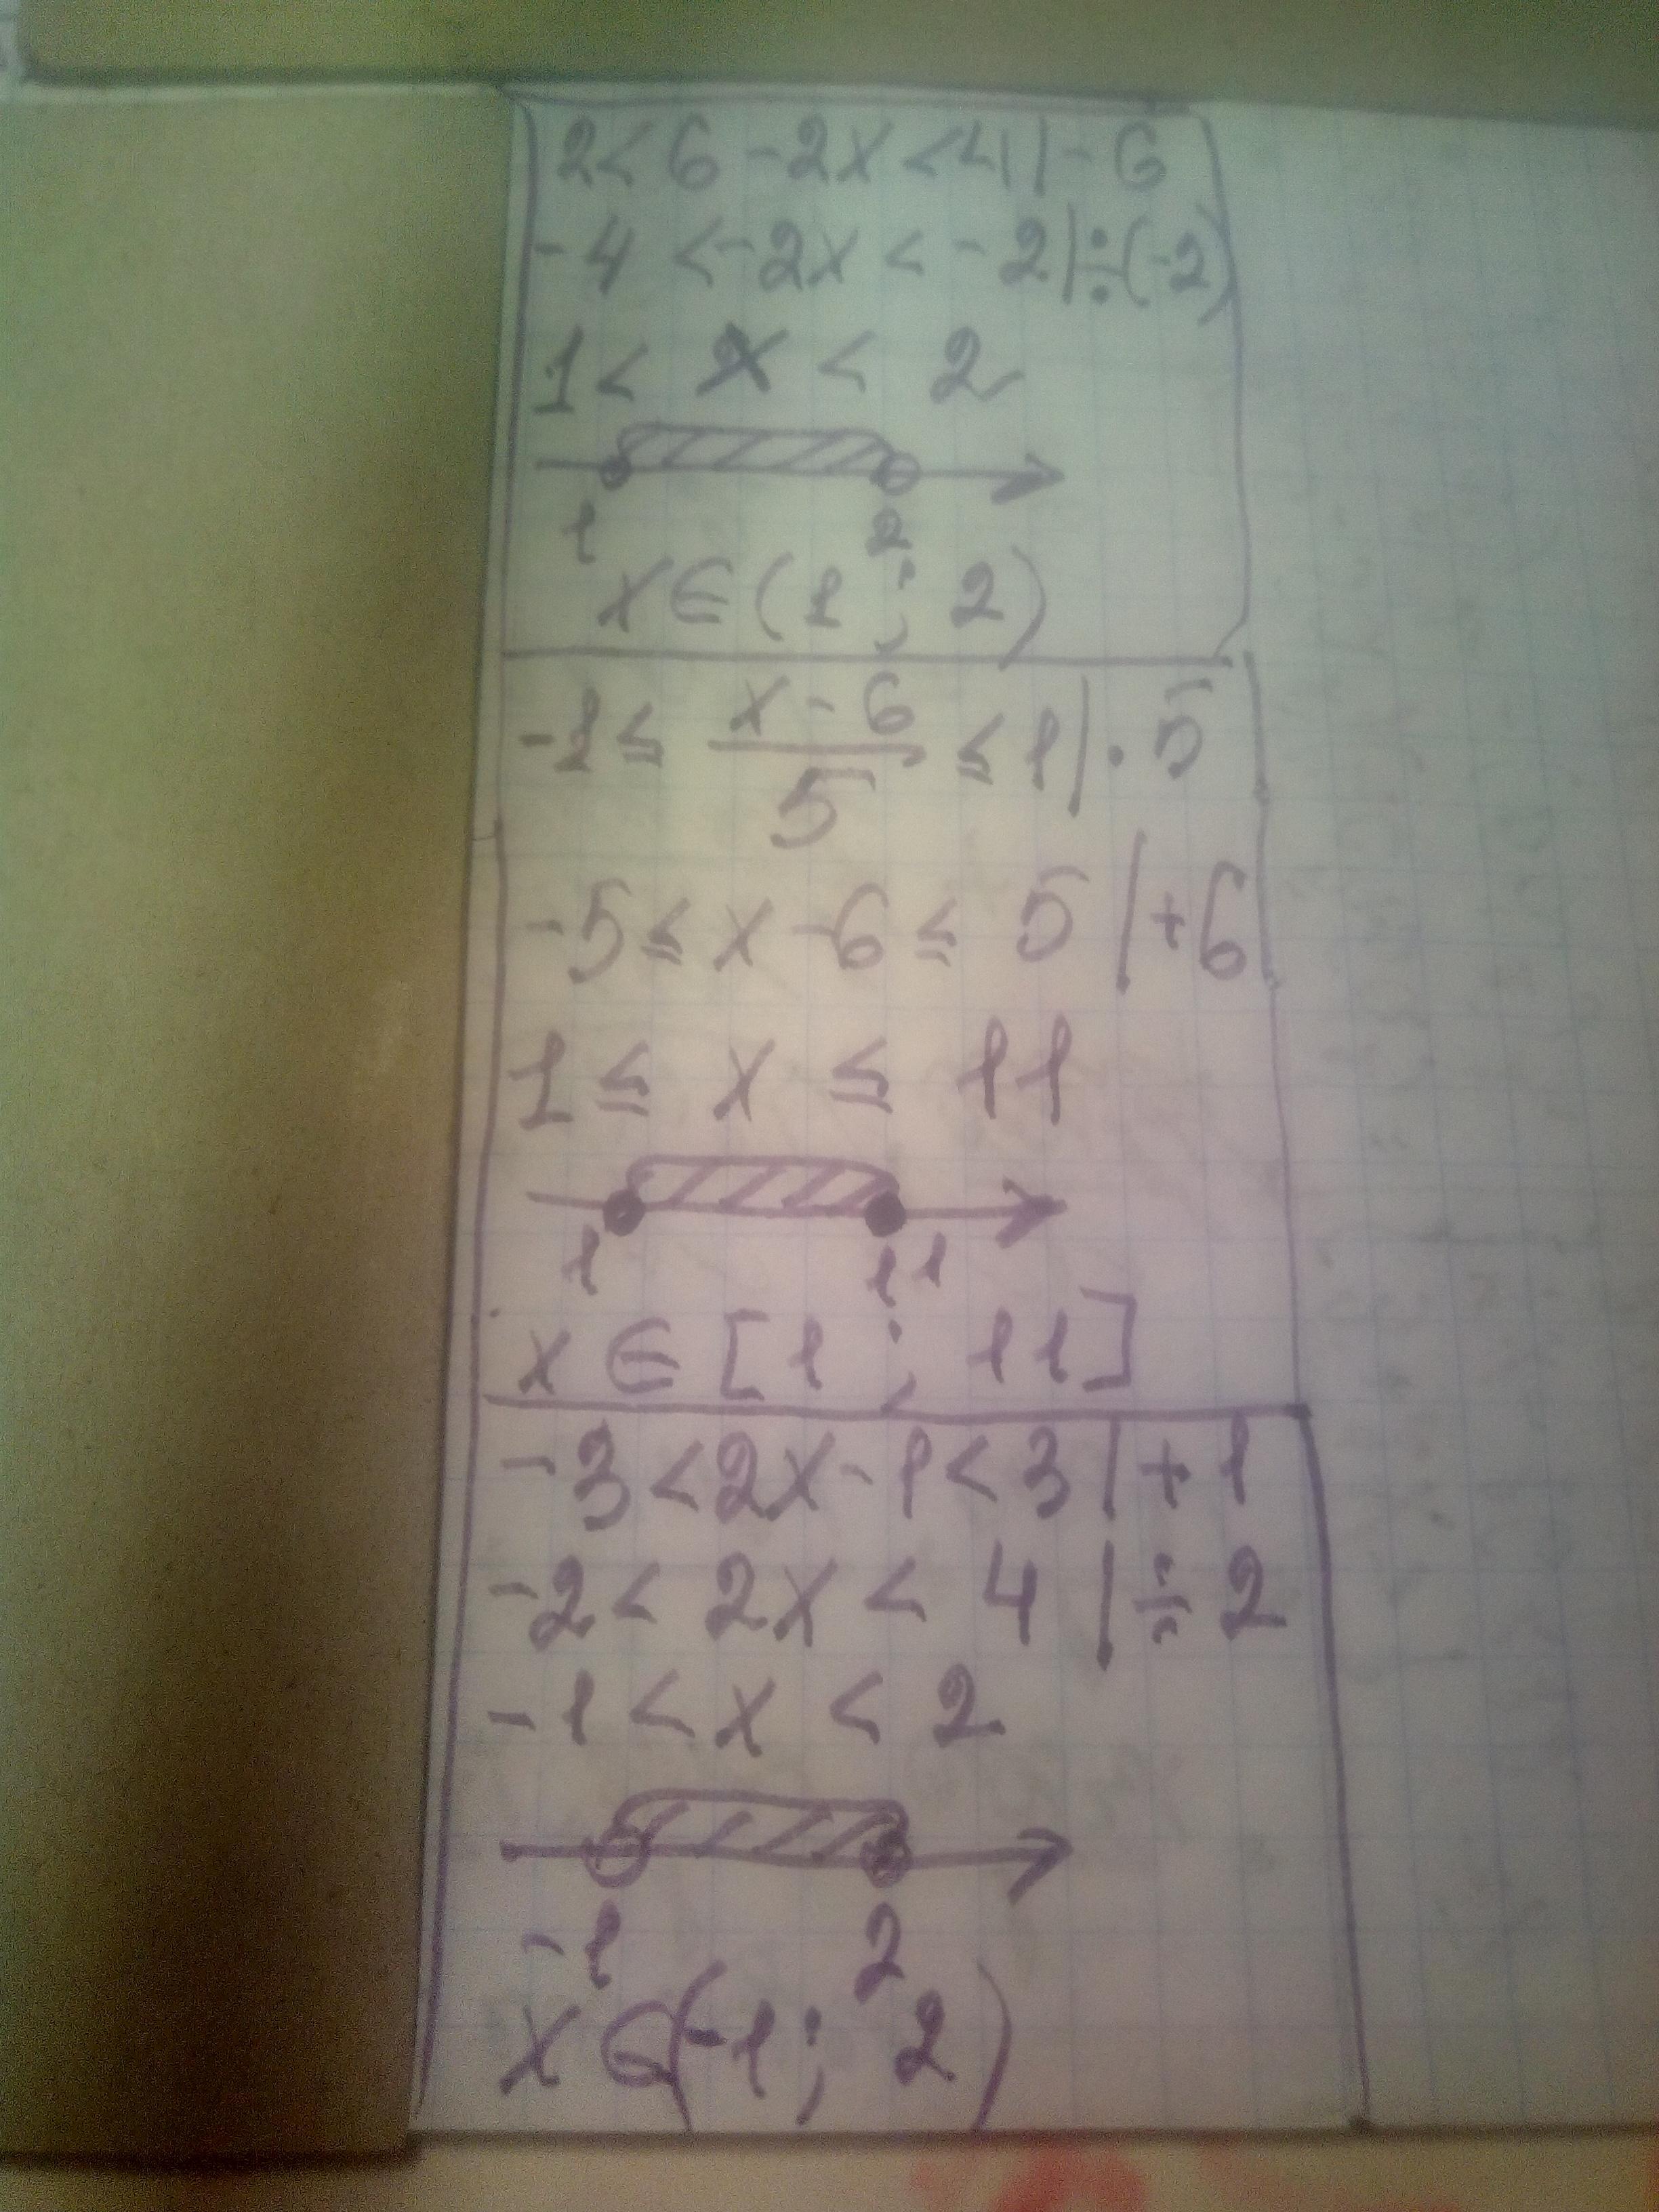 2<6-2x<4|-6
-4<-2x<-2|÷(-2)
1<x<2
1 2
x∈(1;2)
-1≤(x-6)/5≤1|·5
-5≤x-6≤5|+6
1≤x≤11
1 11
x∈[1;11]
-3<2x-1<3|+1
-2<2x<4|÷2
-1<x<2
-1 2
x∈(-1;2)